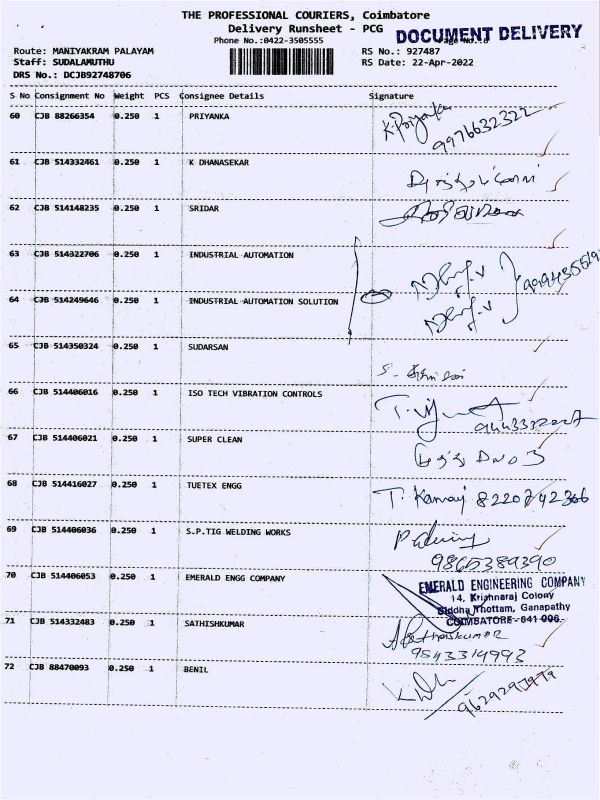 THE PROFESSIONAL COURIERS, Coimbatore
Delivery Runsheet - PCG
DOCUMENT DELIVERY
Phone No.:0422-3505555
Route: MANIYAKRAM PALAYAM
RS No.: 927487
Staff: SUDALAMUTHU
RS Date: 22-Apr-2022
DRS No.: DCJB92748706
S No Consignment No Weight PCS Consignee Details Signature
60 CJB 88266354 0.250 1 PRIYANKA K.Priyanka
9976632322
61 CJB 514332461 0.250 1 K DHANASEKAR
62 CJB 514148235 0.250 1 SRIDAR
63 CJB 514322706 0.250 1 INDUSTRIAL AUTOMATION
64 CJB 514249646 0.250 1 INDUSTRIAL AUTOMATION SOLUTION
65 CJB 514350324 0.250 1 SUDARSAN
66 CJB 514406016 0.250 1 ISO TECH VIBRATION CONTROLS
67 CJB 514406021 0.250 1 SUPER CLEAN
68 CJB 514416027 0.250 1 TUETEX ENGG T. Kamaraj 8220742366
69 CJB 514406036 0.250 1 S.P.TIG WELDING WORKS
9865389390
70 CJB 514406053 0.250 1 EMERALD ENGG COMPANY
EMERALD ENGINEERING COMPANY
14, Krishnaraj Colony
Siddha Thottam, Ganapathy
COIMBATORE-641 006.
71 CJB 514332483 0.250 1 SATHISHKUMAR A Sathaiskumar
9543314993
72 CJB 88470093 0.250 1 BENIL
9629297979